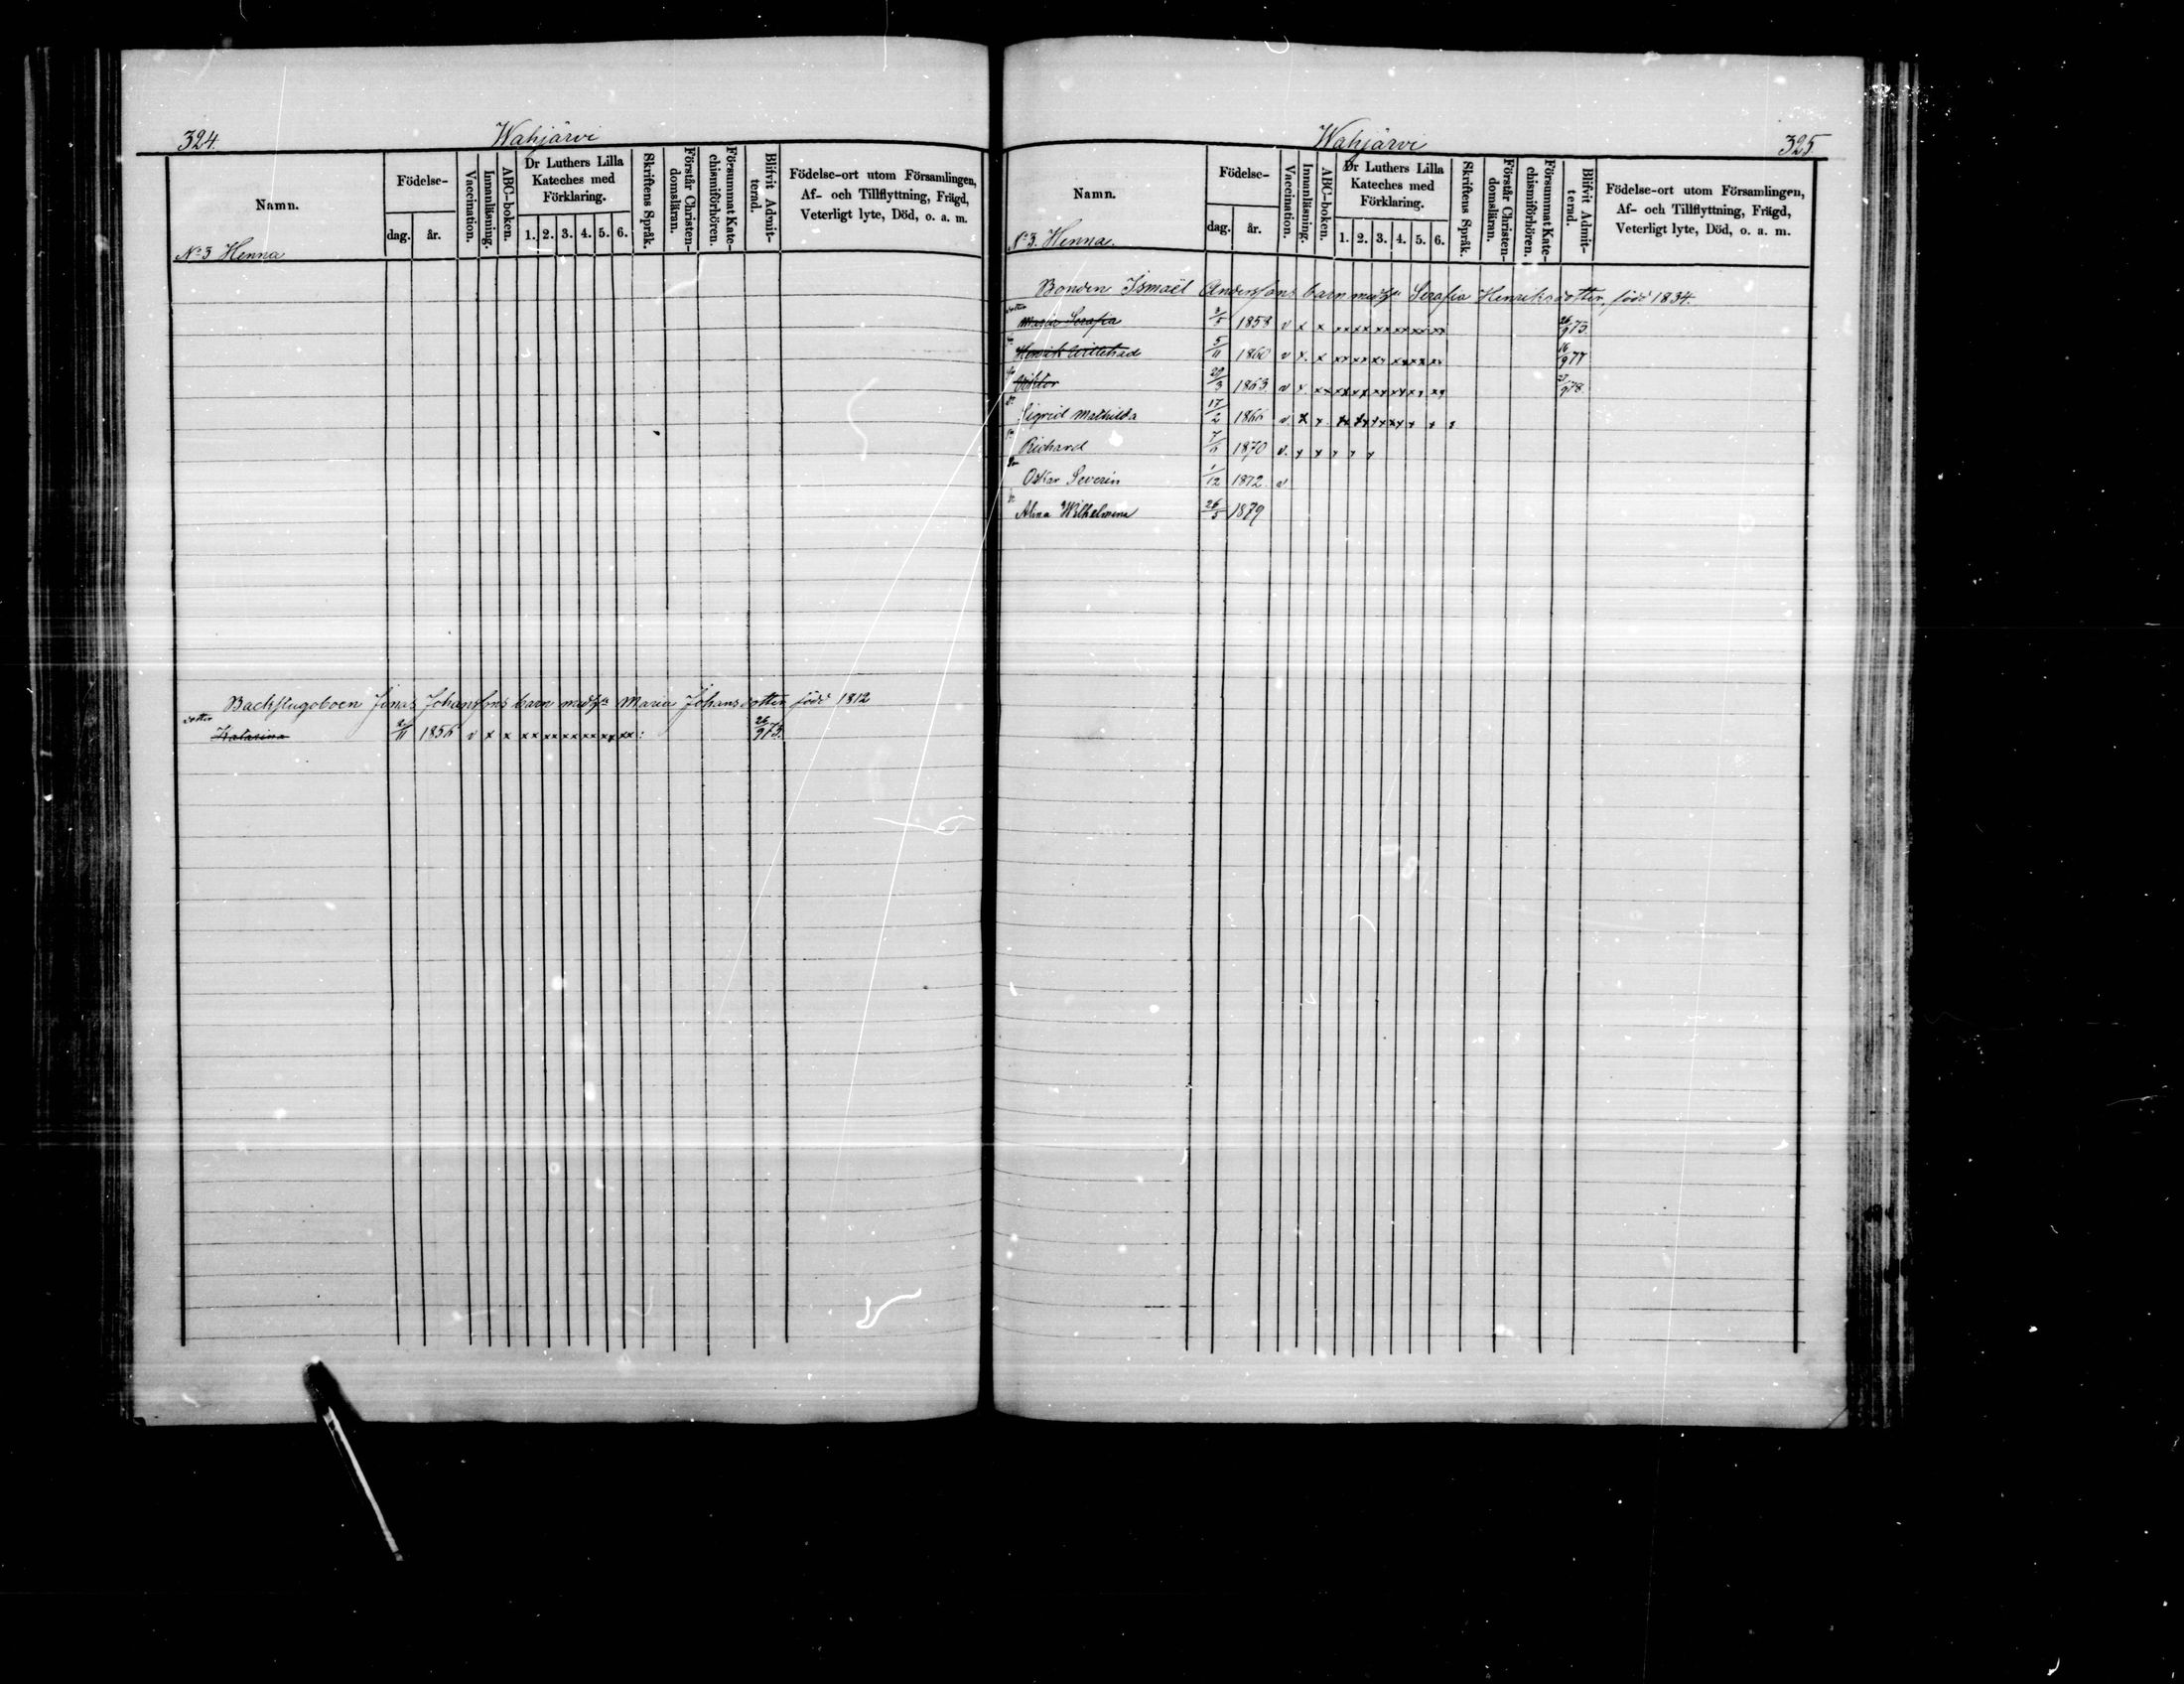 324.
Wahjärvi
Namn.
Födelse-
dag. år.
Vaccination.
Innanläsning.
ABC-boken.
Dr Luthers Lilla
Kateches med
Förklaring.
1. 2. 3. 4. 5. 6.
Skriftens Språk.
Förstår Christen-
domsläran.
Försummat Kate-
chismiförhören.
Blifvit Admit-
terad.
Födelse-ort utom Församlingen,
Af- och Tillflyttning, Frägd,
Veterligt lyte, Död, o. a. m.
No 3 Henna
Backstugoboen Jonas Johanssons barn med h:u Maria Johansdotter född 1812
dotter
Katarina 2/11 1856 v x x xx xx xx xx xx xx : 26/9 73.
Wahjärvi
325
Namn.
Födelse-
dag. år.
Vaccination.
Innanläsning.
ABC-boken.
Dr Luthers Lilla
Kateches med
Förklaring.
1. 2. 3. 4. 5. 6.
Skriftens Språk.
Förstår Christen-
domsläran.
Försummat Kate-
chismiförhören.
Blifvit Admit-
terad.
Födelse-ort utom Församlingen,
Af- och Tillflyttning, Frägd,
Veterligt lyte, Död, o. a. m.
No 3. Henna.
Bonden Ismaël Anderssons barn med h:u Serafia Henriksdotter, född 1834.
dotter
Maria Serafia 1858 v x x xx xx xx xx xx xx 26/9 75.
Henrik Willehad 5/11 1860 v x. x xx xx xx xx xx xx 16/9 77
Viktor 29/3 1863 v x. xx xx xx xx xx xx 9 78.
Sigrid Mathilda 17/2 1866 v. x x
Richard 1870 v. x x x x x
Oskar Severin 1/12 1872. v
Alma Wilhelmina 26/5 1879